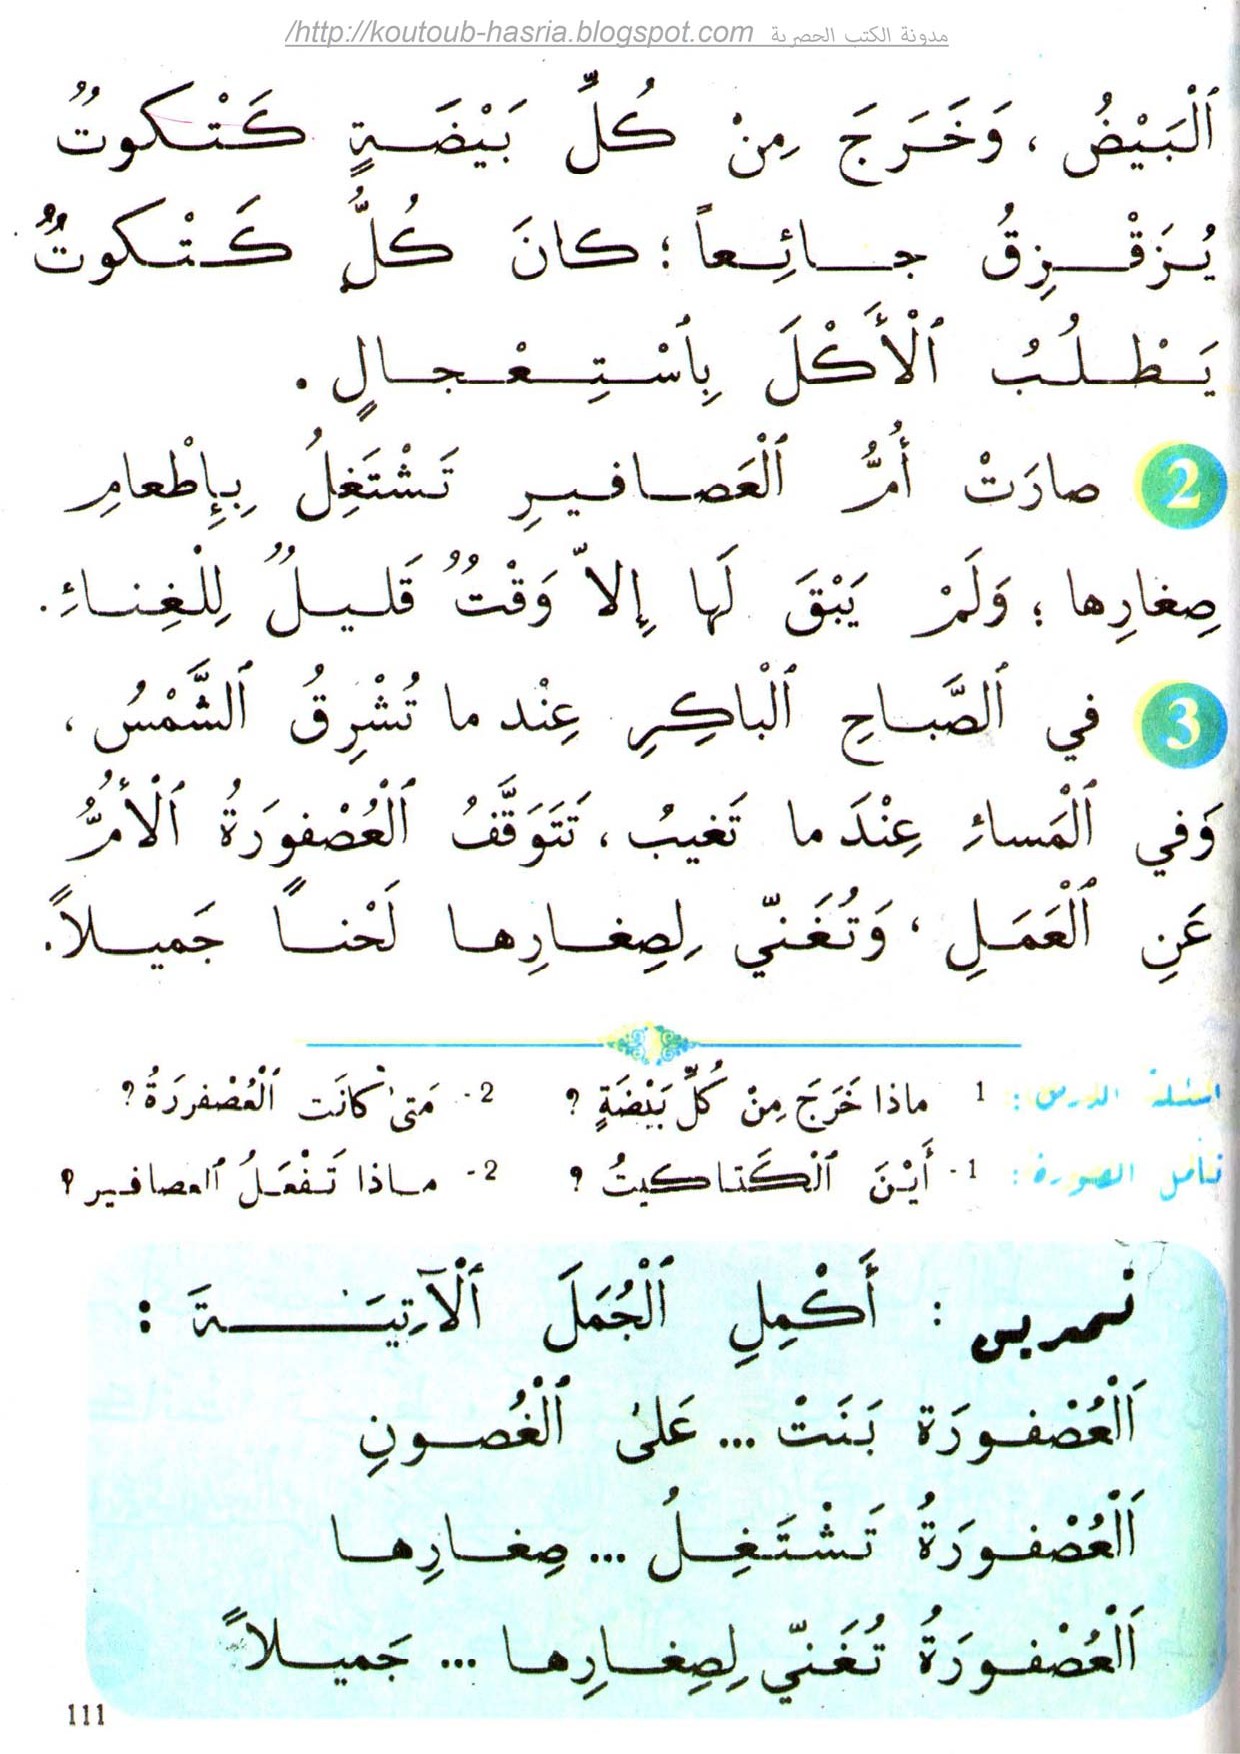 http://koutoub-hasria.blogspot.com/ مدونة الكتب الحصرية
ٱلْبَيْضُ ، وَخَرَجَ مِنْ كُلِّ بَيْضَةٍ كَتْكوتٌ
يُزَقْزِقُ جائِعاً ؛ كانَ كُلُّ كَتْكوتٌ
يَطْلُبُ ٱلْأَكْلَ بِٱسْتِعْجالٍ .
2 صارَتْ أُمُّ ٱلْعَصافيرِ تَشْتَغِلُ بِإِطْعامِ
صِغارِها ؛ وَلَمْ يَبْقَ لَها إِلاّ وَقْتٌ قَليلٌ لِلْغِناءِ.
3 في ٱلصَّباحِ ٱلْباكِرِ عِنْدما تُشْرِقُ ٱلشَّمْسُ ،
وَفي ٱلْمَساءِ عِنْدَما تَغيبُ ، تَتَوَقَّفُ ٱلْعُصْفورَةُ ٱلْأُمُّ
عَنِ ٱلْعَمَلِ ، وَتُغَنّي لِصِغارِها لَحْناً جَميلاً.
اسئلة الدرس: 1 ماذا خَرَجَ مِنْ كُلِّ بَيْضَةٍ ؟ 2- مَتىٰ كانَت ٱلْعُصْفرَرَةُ ؟
تأمل الصورة: 1- أَيْنَ ٱلْكَتاكيتُ ؟ 2- ماذا تَفْعَلُ ٱلعصافير ؟
تمرين : أَكْمِلِ ٱلْجُمَلَ ٱلْآتِيَةَ :
اَلْعُصْفورَة بَنَتْ ... عَلىٰ ٱلْغُصونِ
اَلْعُصْفورَةُ تَشْتَغِلُ ... صِغارِها
اَلْعُصْفورَةُ تُغَنّي لِصِغارِها ... جَميلاً
111